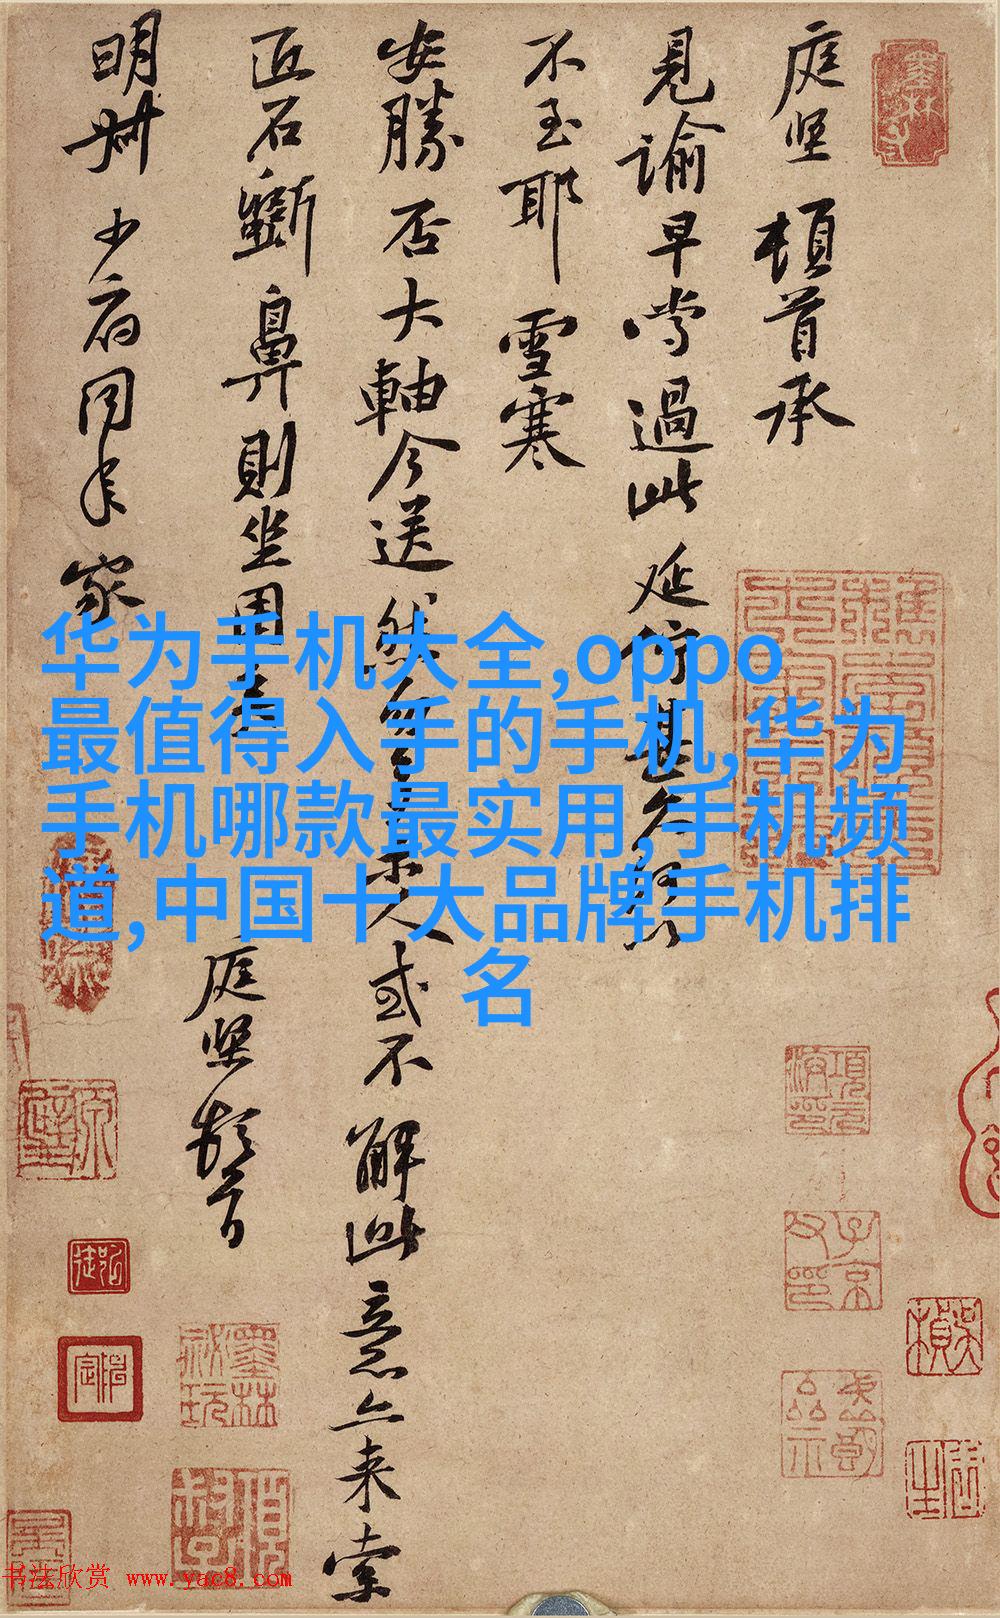 庭堅頓首承
見諭早嘗過此延佇甚久何以
不至耶雪寒
安勝否大軸今送然勿多示人或不解此意亦来索
匠石斲鼻則坐困矣
庭堅頓首
明叔少府同年家
华为手机大全,oppo
最值得入手的手机,华为
手机哪款最实用,手机频
道,中国十大品牌手机排
名
书法欣赏 www.yac8.com